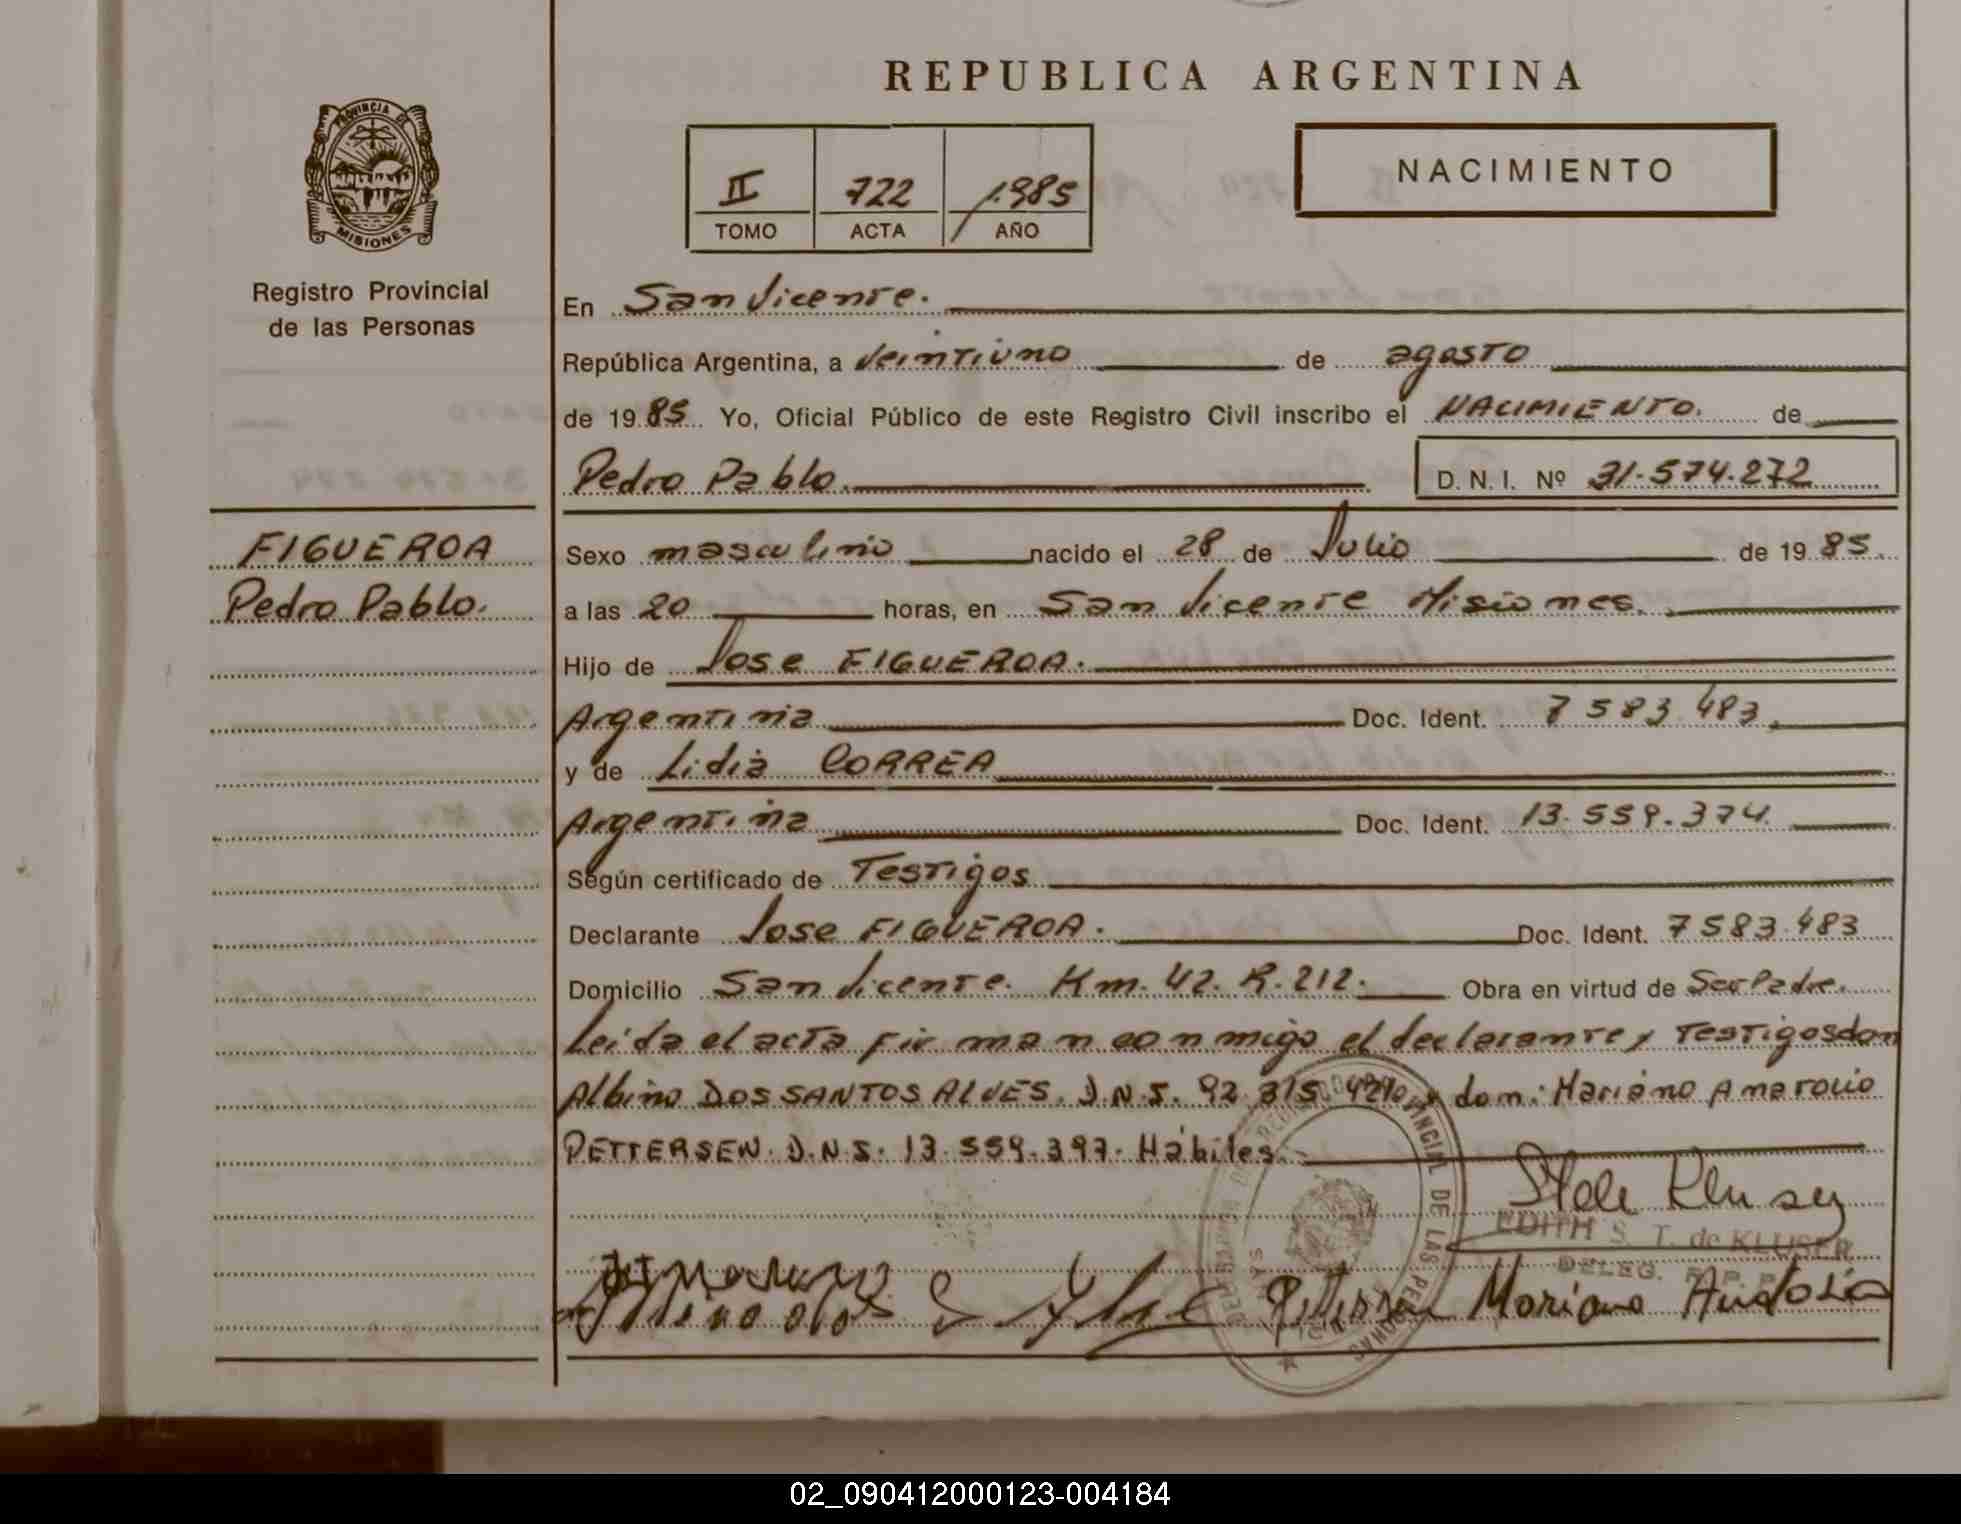 REPUBLICA ARGENTINA
PROVINCIA DE
MISIONES
Registro Provincial
de las Personas
II 722 1.985
TOMO ACTA AÑO
NACIMIENTO
En San Vicente.
República Argentina, a Veintiuno de agosto
de 19 85. Yo, Oficial Público de este Registro Civil inscribo el NACIMIENTO. de
Pedro Pablo. D. N. I. Nº 31.574.272
FIGUEROA
Pedro Pablo.
Sexo masculino nacido el 28 de Julio de 19 85.
a las 20 horas, en San Vicente Misiones.
Hijo de Jose FIGUEROA.
Argentina Doc. Ident. 7583.483.
y de Lidia CORREA
Argentina Doc. Ident. 13.559.374.
Según certificado de Testigos
Declarante Jose FIGUEROA. Doc. Ident. 7583.483
Domicilio San Vicente. Km. 42. R. 212. Obra en virtud de Ser Padre.
Leida el acta firman conmigo el declarante y Testigos don
Albino DOS SANTOS ALVES. D.N.I. 92.315.420 y don: Mariano Anatolio
PETTERSEN. D.N.I. 13.559.397. Hábiles.
EDITH S. T. de KLUSER
DELEG. R. P. P.
Pettersen Mariano Anatolio
PROVINCIAL DE LAS PERSONAS
02_090412000123-004184